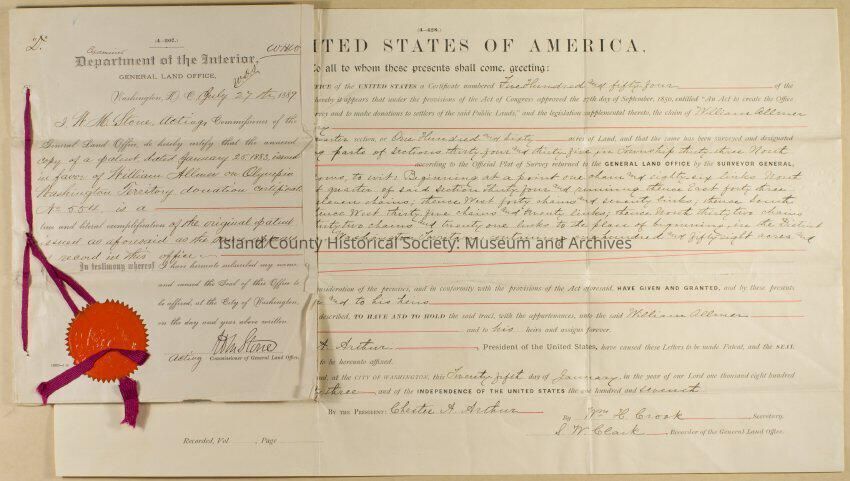 2.
(4—207.)
Examiner
Department of the Interior,
GENERAL LAND OFFICE,
Washington, D. C., July 27th, 1889
I, W. M. Stone, Acting Commissioner of the
General Land Office, do hereby certify that the annexed
copy of a patent dated January 25, 1883, issued
in favor of William Allmer on Olympia
Washington Territory donation Certificate
No 554, is a
true and literal exemplification of the original patent
issued as aforesaid as the
of record in this office
In testimony whereof I have hereunto subscribed my name
and caused the Seal of this Office to
be affixed, at the City of Washington,
on the day and year above written.
W M Stone
Acting Commissioner of General Land Office.
(4—428.)
ITED STATES OF AMERICA,
To all to whom these presents shall come, greeting:
FICE of the UNITED STATES a Certificate numbered Five Hundred and fifty four of the
hereby it appears that under the provisions of the Act of Congress approved the 27th day of September, 1850, entitled “An Act to create the Office
urvey and to make donations to settlers of the said Public Lands,” and the legislation supplemental thereto, the claim of William Allmer
quarter section, or One Hundred and sixty acres of Land, and that the same has been surveyed and designated
parts of sections thirty four and thirty five in Township thirty three North
according to the Official Plat of Survey returned to the GENERAL LAND OFFICE by the SURVEYOR GENERAL,
ows, to wit: Beginning at a point one chain and eighty six links West
st quarter of said section thirty four and running thence East forty three
eleven chains; thence West forty chains and seventy links; thence South
hence West thirty five chains and twenty links; thence North thirty two chains
ty two chains and twenty one links to the place of beginning, in the District
Washington Territory containing one hundred and fifty eight acres and
Island County Historical Society: Museum and Archives
onsideration of the premises, and in conformity with the provisions of the Act aforesaid, HAVE GIVEN AND GRANTED, and by these presents
and to his heirs
described, TO HAVE AND TO HOLD the said tract, with the appurtenances, unto the said William Allmer
and to his heirs and assigns forever.
A. Arthur, President of the United States, have caused these Letters to be made Patent, and the SEAL
to be hereunto affixed.
and, at the CITY OF WASHINGTON, this Twenty fifth day of January, in the year of our Lord one thousand eight hundred
three, and of the INDEPENDENCE OF THE UNITED STATES the one hundred and seventh
BY THE PRESIDENT: Chester A. Arthur
By Wm H. Crook, Secretary.
S. W. Clark, Recorder of the General Land Office.
Recorded, Vol. , Page